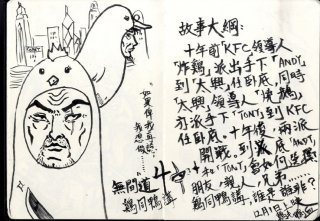 故事大綱:
十年前KFC領導人
「炸雞」派出手下「ANDY」
到「大興」任卧底,同時
「大興」領導人「燒鵝」
亦派手下「TONY」到KFC
任卧底。十年後,兩派
開戰。到底「ANDY」
和「TONY」會如何
朋友,親人,兄弟……
雞同鴨講,誰是誰非?
"如果俾我再
我想……
無間道
雞同鴨講